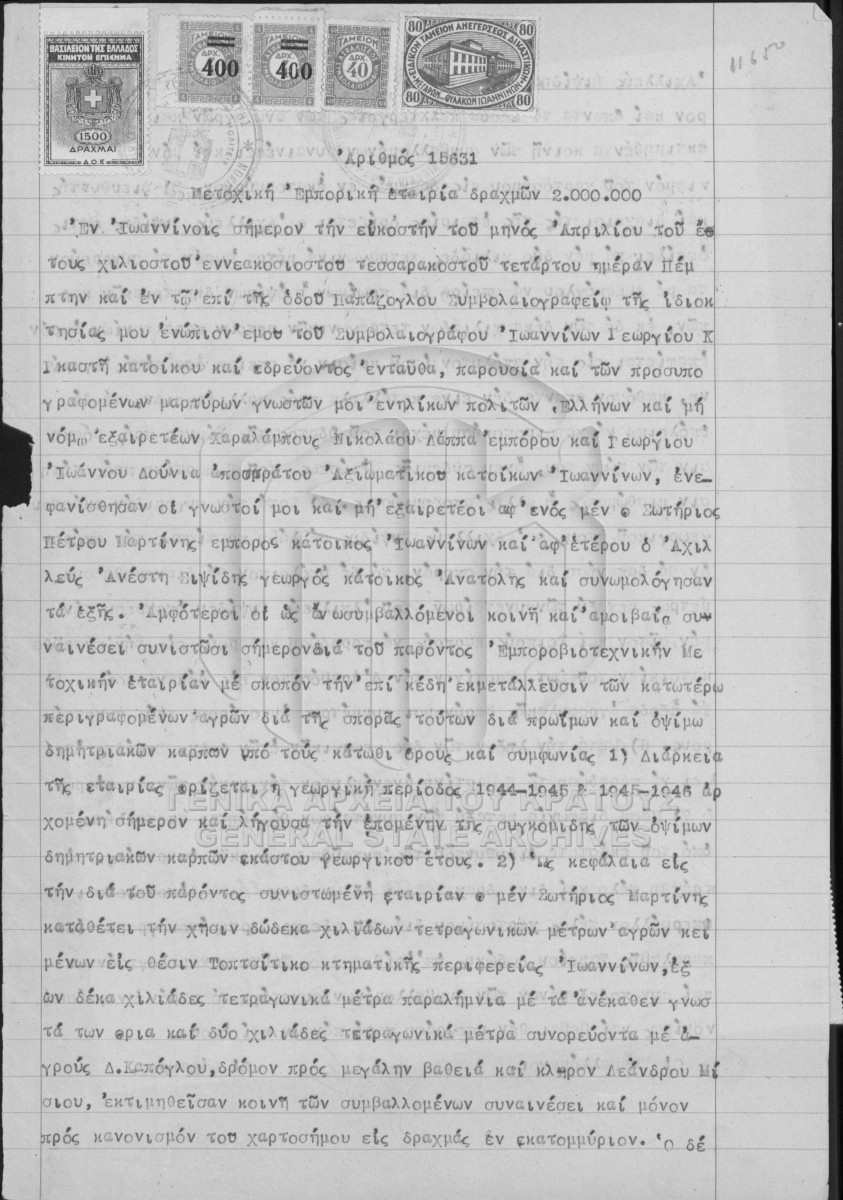 11650
ΒΑΣΙΛΕΙΟΝ ΤΗΣ ΕΛΛΑΔΟΣ
ΚΙΝΗΤΟΝ ΕΠΙΣΗΜΑ
1500
ΔΡΑΧΜΑΙ
Δ.Ο.Ε
ΤΑΜΕΙΟΝ
400
ΤΑΜΕΙΟΝ
400
ΤΑΜΕΙΟΝ
ΔΡΧ.
40
80 ΔΡΑΧΜΑΙ 80
ΕΙΔΙΚΟΝ ΤΑΜΕΙΟΝ ΑΝΕΓΕΡΣΕΩΣ ΔΙΚΑΣΤΙΚΟΥ
ΜΕΓΑΡΟΥ ΦΥΛΑΚΩΝ ΙΩΑΝΝΙΝΩΝ
80 80
Ἀριθμός 15631
Μετοχική Ἐμπορική ἑταιρία δραχμῶν 2.000.000
Ἐν Ἰωαννίνοις σήμερον τήν εἰκοστήν τοῦ μηνός Ἀπριλίου τοῦ ἔ
τους χιλιοστοῦ ἐννεακοσιοστοῦ τεσσαρακοστοῦ τετάρτου ἡμέραν Πέμ
πτην καί ἐν τῷ ἐπί τῆς ὁδοῦ Παπάζογλου Συμβολαιογραφείῳ τῆς ἰδιοκ
τησίας μου ἐνώπιον ἐμοῦ τοῦ Συμβολαιογράφου Ἰωαννίνων Γεωργίου Κ
Γκαστῆ κατοίκου καί ἑδρεύοντος ἐνταῦθα, παρουσία καί τῶν προσυπο
γραφομένων μαρτύρων γνωστῶν μοι ἐνηλίκων πολιτῶν Ἑλλήνων καί μή
νόμῳ ἐξαιρετέων Χαραλάμπους Νικολάου Λάππα ἐμπόρου καί Γεωργίου
Ἰωάννου Δούνια ἀποστράτου Ἀξιωματικοῦ κατοίκων Ἰωαννίνων, ἐνε-
φανίσθησαν οἱ γνωστοί μοι καί μή ἐξαιρετέοι ἀφ ἑνός μέν ὁ Σωτήριος
Πέτρου Μαρτίνης ἔμπορος κάτοικος Ἰωαννίνων καί ἀφ ἑτέρου ὁ Ἀχιλ
λεύς Ἀνέστη Σιψίδης γεωργός κάτοικος Ἀνατολῆς καί συνωμολόγησαν
τά ἑξῆς. Ἀμφότεροι οἱ ὡς ἄνωσυμβαλλόμενοι κοινῇ καί ἀμοιβαίᾳ συ
ναινέσει συνιστῶσι σήμερονδιά τοῦ παρόντος Ἐμποροβιοτεχνικήν Με
τοχικήν ἑταιρίαν μέ σκοπόν τήν ἐπί κέδη ἐκμετάλλευσιν τῶν κατωτέρω
περιγραφομένων ἀγρῶν διά τῆς σπορᾶς τούτων διά πρωΐμων καί ὀψίμω
δημητριακῶν καρπῶν ὑπό τούς κάτωθι ὅρους καί συμφωνίας 1) Διάρκεια
τῆς ἑταιρίας ὁρίζεται ἡ γεωργική περίοδος 1944-1945 & 1945-1946 ἀρ
χομένη σήμερον καί λήγουσα τήν ἑπομένην τῆς συγκομιδῆς τῶν ὀψίμων
δημητριακῶν καρπῶν ἑκάστου γεωργικοῦ ἔτους. 2) Ὡς κεφάλαια εἰς
τήν διά τοῦ παρόντος συνιστωμένη ἑταιρίαν ὁ μέν Σωτήριος Μαρτίνης
καταθέτει τήν χῆσιν δώδεκα χιλιάδων τετραγωνικῶν μέτρων ἀγρῶν κει
μένων εἰς θέσιν Τοπτσίτικο κτηματικῆς περιφερείας Ἰωαννίνων,ἐξ
ὧν δέκα χιλιάδες τετραγωνικά μέτρα παραλήμνια μέ τά ἀνέκαθεν γνωσ
τά των ὅρια καί δύο χιλιάδες τετραγωνικά μέτρα συνορεύοντα μέ ἀ-
γρούς Δ.Καπόγλου,δρόμον πρός μεγάλην βαθειά καί κλῆρον Λεάνδρου Μί
σιου, ἐκτιμηθεῖσαν κοινῇ τῶν συμβαλλομένων συναινέσει καί μόνον
πρός κανονισμόν τοῦ χαρτοσήμου εἰς δραχμάς ἕν ἑκατομμύριον. Ὁ δέ
ΓΕΝΙΚΑ ΑΡΧΕΙΑ ΤΟΥ ΚΡΑΤΟΥΣ
GENERAL STATE ARCHIVES